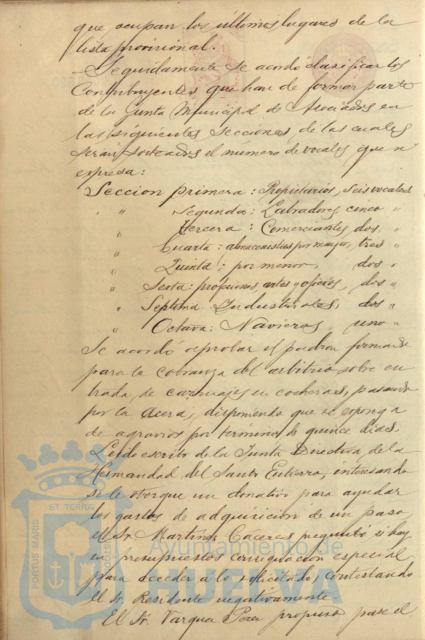 que ocupan los últimos lugares de la
lista provisional.
Seguidamente se acordó clasificar los
Contribuyentes que han de formar parte
de la Junta Municipal de Asociados en
las siguientes Secciones de las cuales
serán sorteados el número de vocales que se
expresa:
Seccion primera: Propietarios, seis vocales
" Segunda: Labradores, cinco "
" Tercera: Comerciantes, dos, "
" Cuarta: almacenistas por mayor, tres "
" Quinta: por menor, dos "
" Sexta: profesiones, artes y oficios, dos "
" Septima: Industriales, dos "
" Octava: Navieros, uno "
Se acordó aprobar el padron formado
para la cobranza del arbitrio sobre en
trada de carruajes en cocheras, pasando
por la acera, disponiendo que se esponga
de agravios por termino de quince dias.
Leido escrito de la Junta Directiva de la
Hermandad del Santo Entierro, interesando
se le otorgue un donativo para ayudar
los gastos de adquisicion de un paso,
el Sr. Martinez Caceres preguntó si hay
en presupuestos consignacion especial
para acceder a lo solicitado, contestando
el Sr. Presidente negativamente.
El Sr. Vazquez Perez propuso pase el
PORTUS MARIS
ET TERRAE
Ayuntamiento de
HUELVA